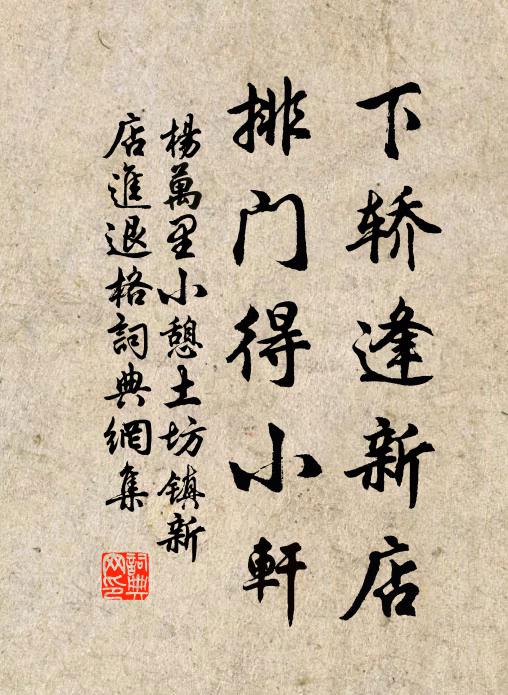 下轿逢新店
排门得小軒
楊萬里小憩土坊镇新
店進退格詞典網集
詞典
网印